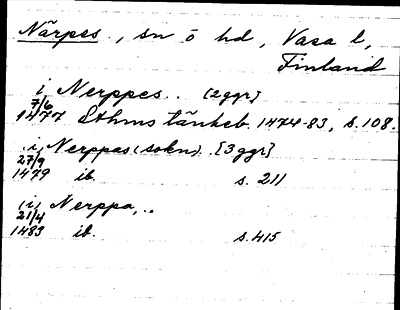 Närpes, sn o hd, Vasa l,
Finland
i Nerppes.. [2ggr]
7/6
1477 Sthms tänkeb. 1474-83, s. 108.
i Nerppas (sokn).. [3ggr]
27/9
1479 ib. s. 211
(i) Nerppa,..
21/4
1483 ib. s. 415